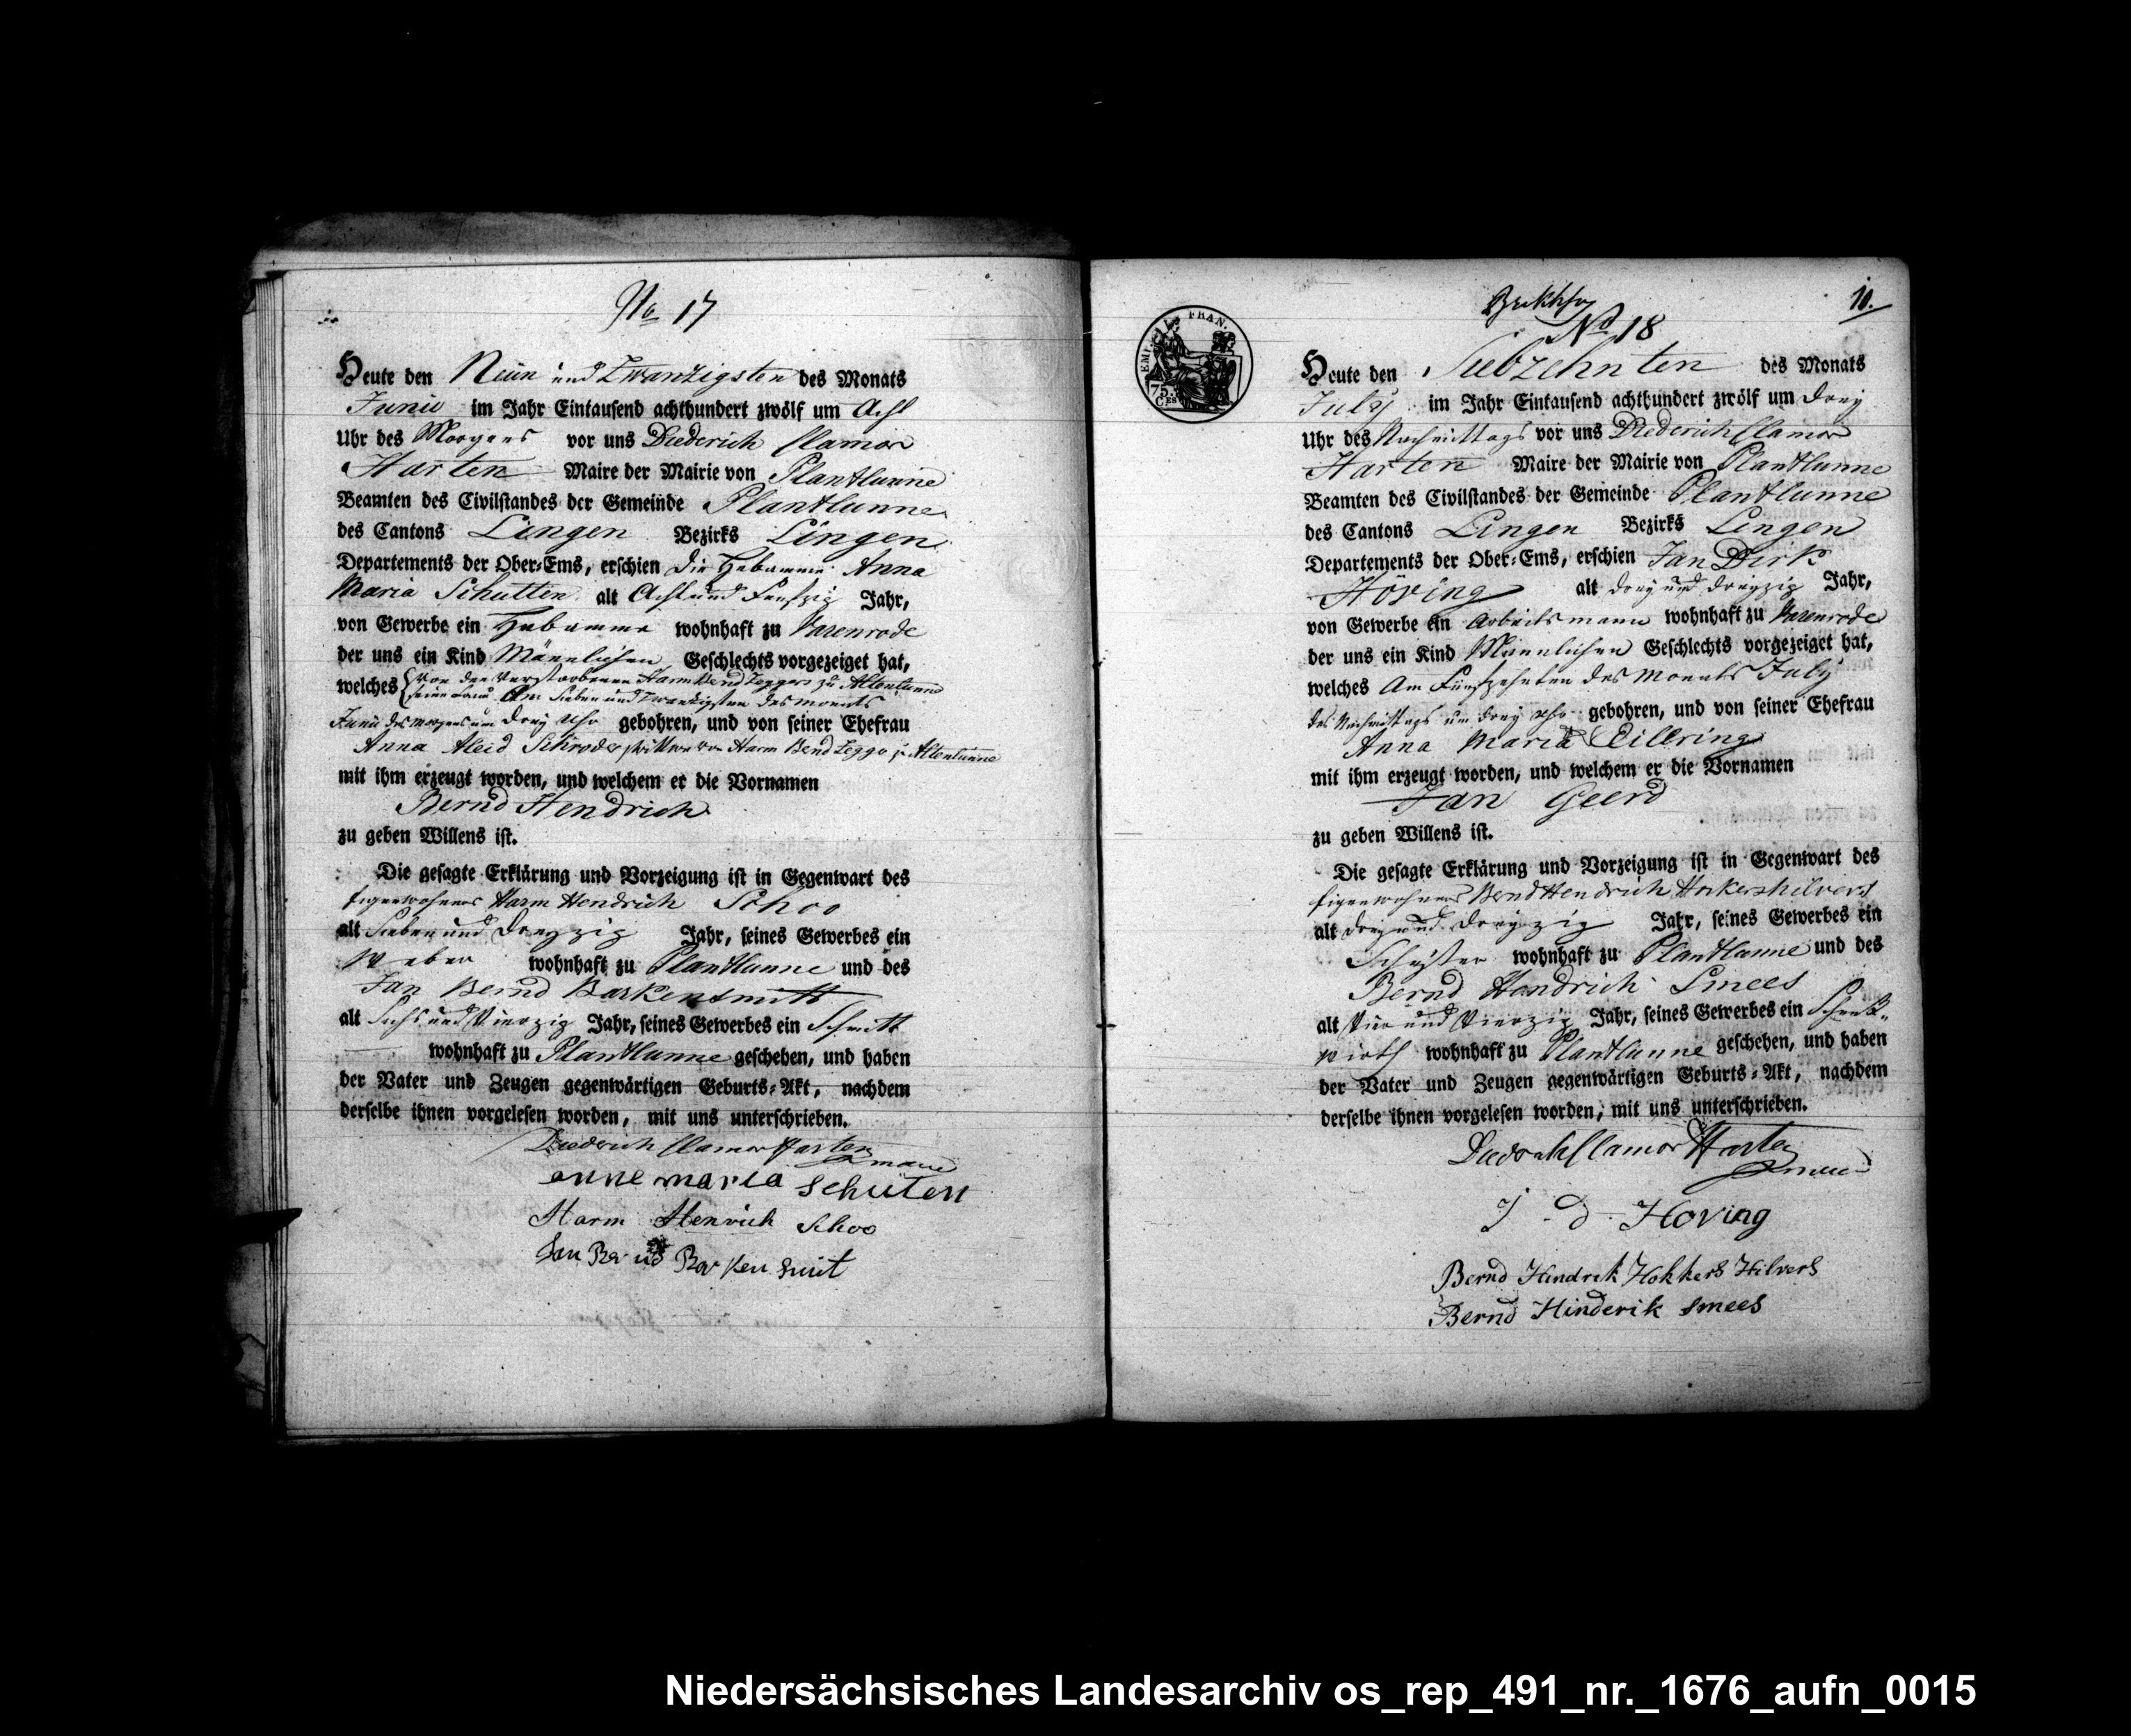 No 17
Heute den Neün und Zwanzigsten des Monats
Junii im Jahr Eintausend achthundert zwölf um Acht
Uhr des Morgens vor uns Diederich Clamor
Harten Maire der Mairie von Plantlunne
Beamten des Civilstandes der Gemeinde Plantlunne
des Cantons Lingen Bezirks Lingen
Departements der Ober-Ems, erschien die Hebamme Anna
Maria Schutten alt Acht und Funfzig Jahr,
von Gewerbe ein Hebamme wohnhaft zu Varenrode
der uns ein Kind Männlichen Geschlechts vorgezeiget hat,
welches von den Verstorbenen Harm Bend Legger zu Altenlunne
Am Sieben und Zwanzigsten des Monats
Junii des Morgens um drey Uhr gebohren, und von seiner Ehefrau
Anna Aleid Schroder Wittwe von Harm Bend Legge zu Altenlunne
mit ihm erzeugt worden, und welchem er die Vornamen
Bernd Hendrich
zu geben Willens ist.
Die gesagte Erklärung und Vorzeigung ist in Gegenwart des
Eigenwohners Harm Hendrich Schoo
alt Sieben und dreyzig Jahr, seines Gewerbes ein
Weber wohnhaft zu Plantlunne und des
Jan Bernd Barkensmitt
alt Sechs und Vierzig Jahr, seines Gewerbes ein Schmitt
wohnhaft zu Plantlunne geschehen, und haben
der Vater und Zeugen gegenwärtigen Geburts-Akt, nachdem
derselbe ihnen vorgelesen worden, mit uns unterschrieben.
Diedrich Clamor Harten
maire
anne maria schuten
Harm Henrich Schoo
Jan Bernd Barkensmit
10.
No 18
EMPIRE FRAN.
75
CES
Heute den Siebzehnten des Monats
July im Jahr Eintausend achthundert zwölf um drey
Uhr des Nachmittags vor uns Diederich Clamor
Harten Maire der Mairie von Plantlunne
Beamten des Civilstandes der Gemeinde Plantlunne
des Cantons Lingen Bezirks Lingen
Departements der Ober-Ems, erschien Jan Dirk
Höving alt drey und dreyzig Jahr,
von Gewerbe ein Arbeitsmann wohnhaft zu Varenrode
der uns ein Kind Männlichen Geschlechts vorgezeiget hat,
welches Am Fünfzehnten des Monats July
des Nachmittags um drey Uhr gebohren, und von seiner Ehefrau
Anna Maria Eillring
mit ihm erzeugt worden, und welchem er die Vornamen
Jan Geerd
zu geben Willens ist.
Die gesagte Erklärung und Vorzeigung ist in Gegenwart des
Eigenwohners Bernd Hendrich Hokershilvers
alt drey und dreyzig Jahr, seines Gewerbes ein
Schuster wohnhaft zu Plantlunne und des
Bernd Hendrich Smees
alt Vier und Vierzig Jahr, seines Gewerbes ein Schenk-
wirth wohnhaft zu Plantlunne geschehen, und haben
der Vater und Zeugen gegenwärtigen Geburts-Akt, nachdem
derselbe ihnen vorgelesen worden, mit uns unterschrieben.
Diedrich Clamor Harten
maire
J. D. Hoving
Bernd Hindrik Hokkers Hilvers
Bernd Hinderik Smees
Niedersächsisches Landesarchiv os_rep_491_nr._1676_aufn_0015